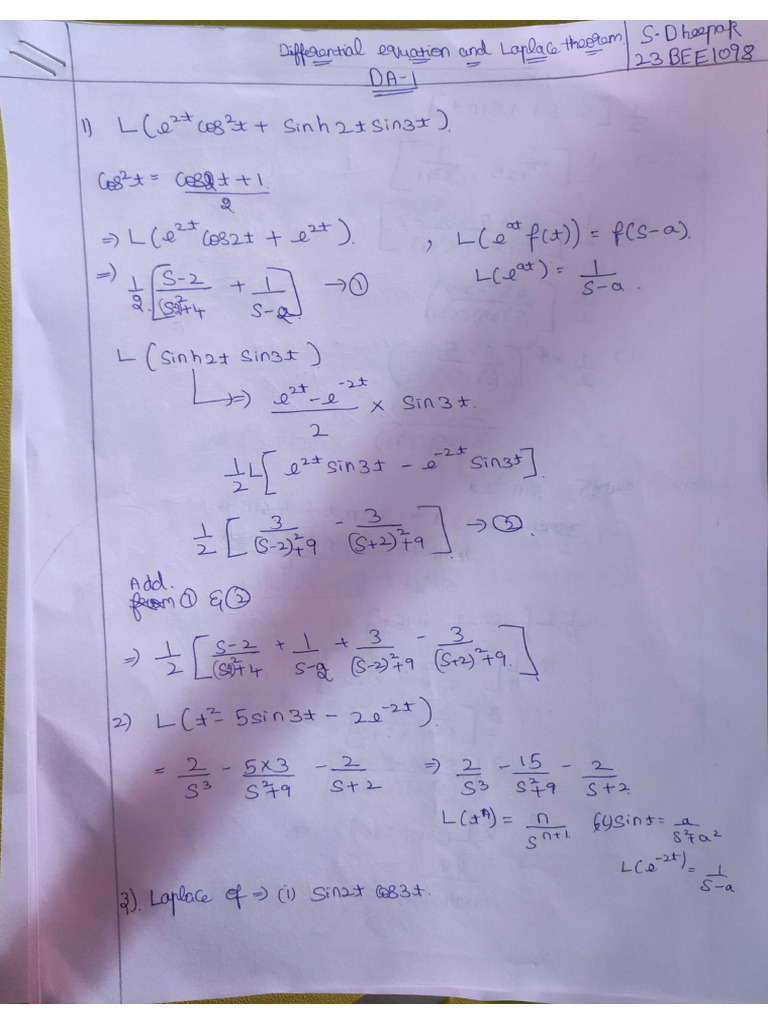 Differential equation and Laplace theorem
S. Dheepak
23BEE1098
DA-1
1) L(e^{2t} cos²t + sinh2t sin3t).
cos²t = cos2t + 1 / 2
⇒ L(e^{2t} cos2t + e^{2t}). , L(e^{at} f(t)) = f(s-a).
⇒ 1/2 [ s-2/(s-2)²+4 + 1/s-2 ] → ① L(e^{at}) = 1/s-a.
L(sinh2t sin3t)
⇒ e^{2t} - e^{-2t} / 2 × sin3t.
1/2 L[ e^{2t} sin3t - e^{-2t} sin3t ].
1/2 [ 3/(s-2)²+9 - 3/(s+2)²+9 ] → ②.
Add.
from ① & ②
⇒ 1/2 [ s-2/(s-2)²+4 + 1/s-2 + 3/(s-2)²+9 - 3/(s+2)²+9. ]
2) L(t² - 5sin3t - 2e^{-2t}).
= 2/s³ - 5×3/s²+9 - 2/s+2 ⇒ 2/s³ - 15/s²+9 - 2/s+2.
L(t^n) = n/s^{n+1} sint = a/s²+a²
L(e^{-2t}) = 1/s-a
3). Laplace of ⇒ (i) sin2t cos3t.